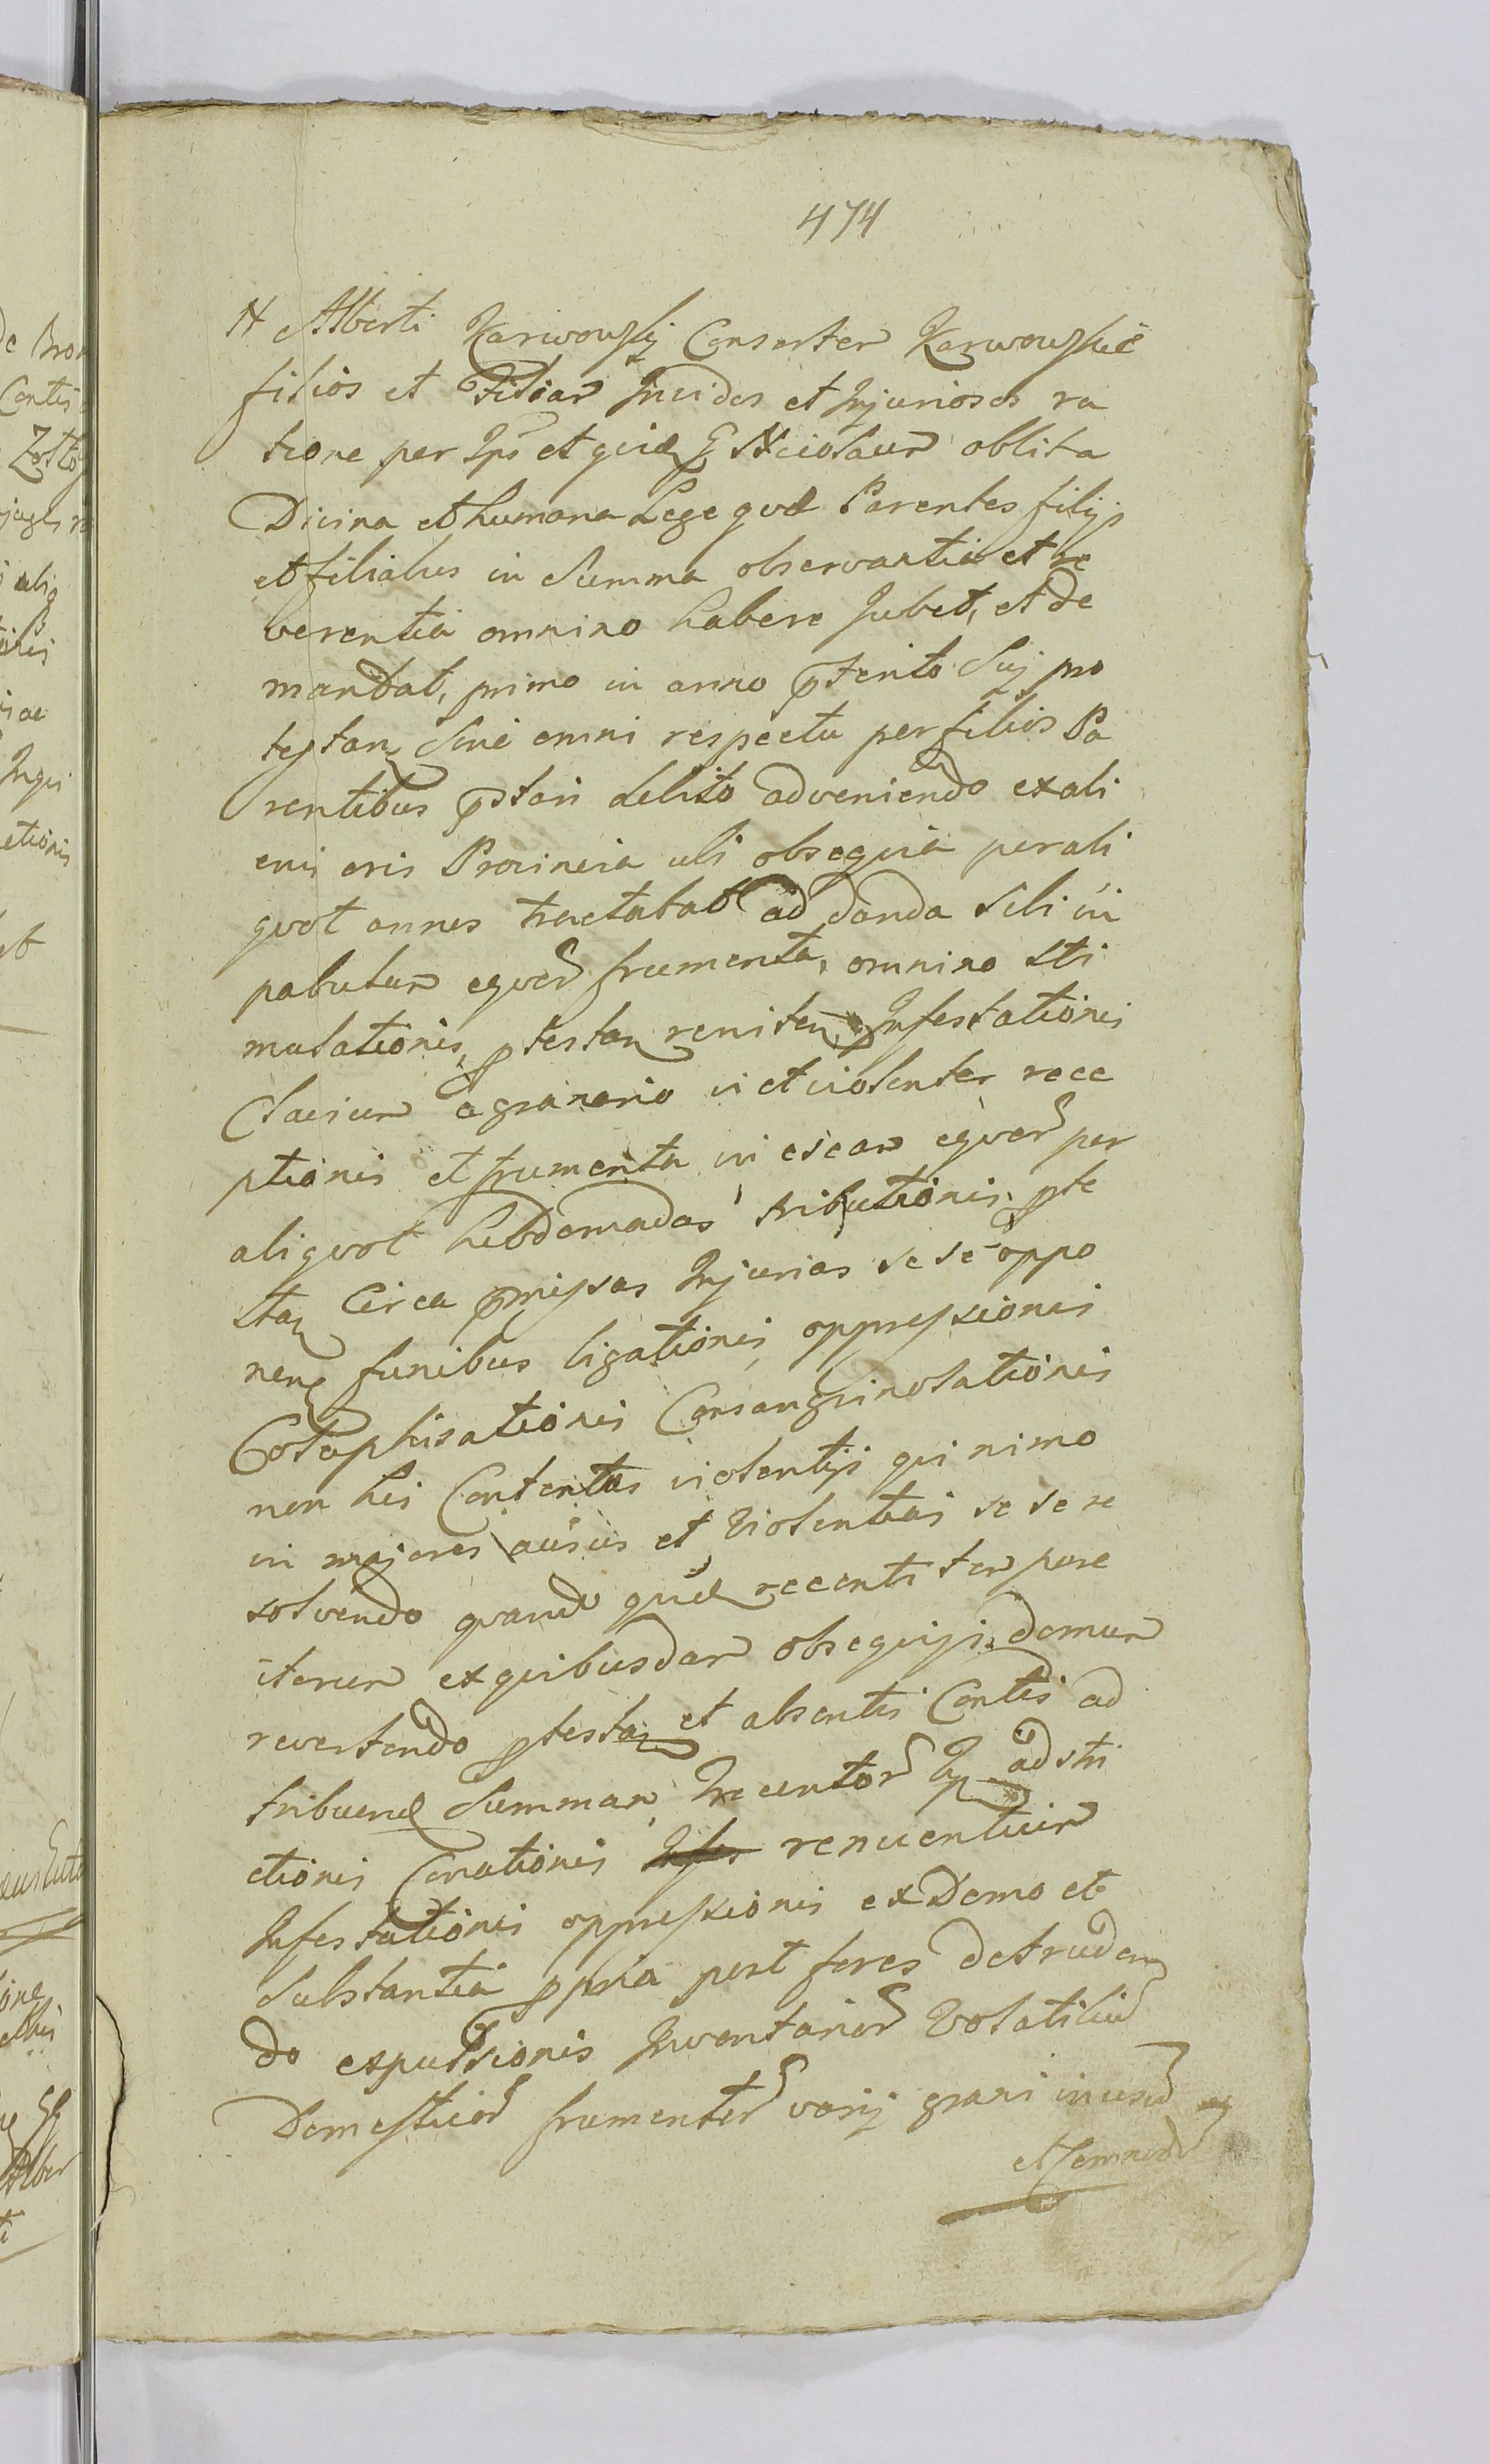 474
N Alberti Karwowskij Consorter Karwowskie
filios et Filiar Invidos et Injuriosos ra
tione per Ips et quid N Nicolaum oblita
Divina et humana Lege quod Parentes filijs
et filiabus in summa observantia et re
verentia omnino habere Jubet, et de
mandat, primo in anno pterito Suj pro
testan Sine omni respectu per filios Pa
rentibus pstari debito adveniendo ex ali
enis oris Provincia ubi obsequia per ali
quot annos tractabat ad danda sibi in
pabulum equor frumenta, omnino sti
mulationis, ptestan reniten Infestationis
Clavium a granario vi et violenter rece
ptionis et frumenta in escam equor per
aliquot hebdomadas tributionis, pte
stan Circa pmissas Injurias se se oppo
nen funibus ligationis oppressionis
Colaphisationis Consangvinolationis
non his Contentus violentijs qui nimo
in majores ausus et violentias se se re
solvendo quando quid recenti tempore
iterum ex quibusdam obsequijs domum
revertendo ptestan et absentis Contis ad
tribuend Summam Trecentor adstri
ctionis Conationis renuentium
Infestationis oppressionis ex Domo et
Substantia ppria post fores detruden
do expulsionis Inventarior Volatilium
Domesticor frumentor varij grani in usum
et seminand